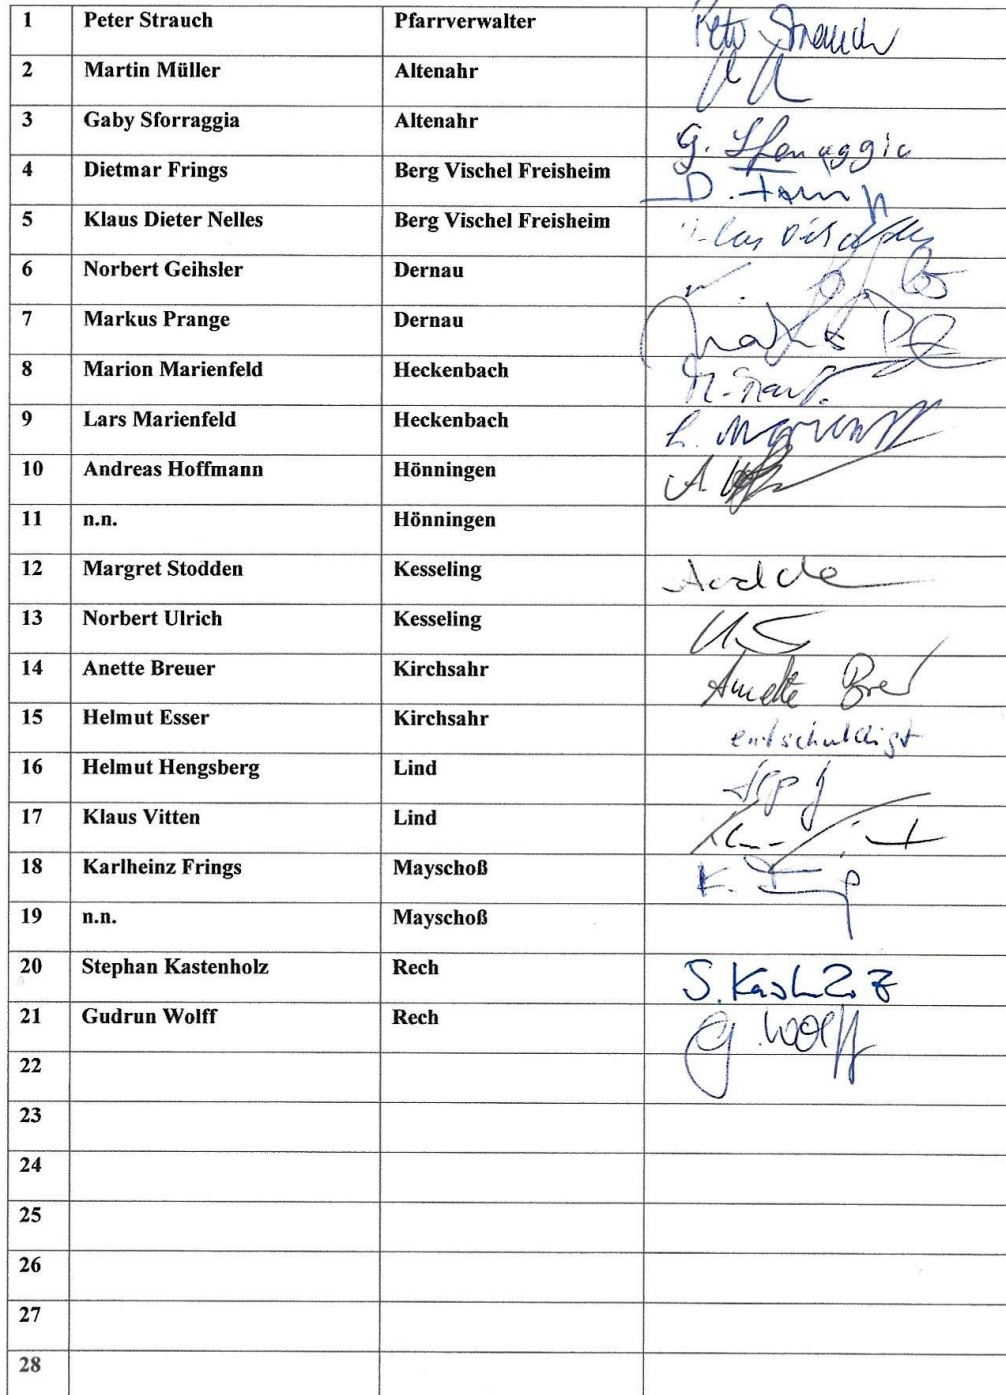 1 Peter Strauch Pfarrverwalter Peter Strauch
2 Martin Müller Altenahr
3 Gaby Sforraggia Altenahr G. Sforraggia
4 Dietmar Frings Berg Vischel Freisheim D. Frings
5 Klaus Dieter Nelles Berg Vischel Freisheim
6 Norbert Geihsler Dernau
7 Markus Prange Dernau
8 Marion Marienfeld Heckenbach
9 Lars Marienfeld Heckenbach
10 Andreas Hoffmann Hönningen
11 n.n. Hönningen
12 Margret Stodden Kesseling
13 Norbert Ulrich Kesseling
14 Anette Breuer Kirchsahr Anette
15 Helmut Esser Kirchsahr entschuldigt
16 Helmut Hengsberg Lind
17 Klaus Vitten Lind
18 Karlheinz Frings Mayschoß
19 n.n. Mayschoß
20 Stephan Kastenholz Rech
21 Gudrun Wolff Rech G. Wolff
22
23
24
25
26
27
28